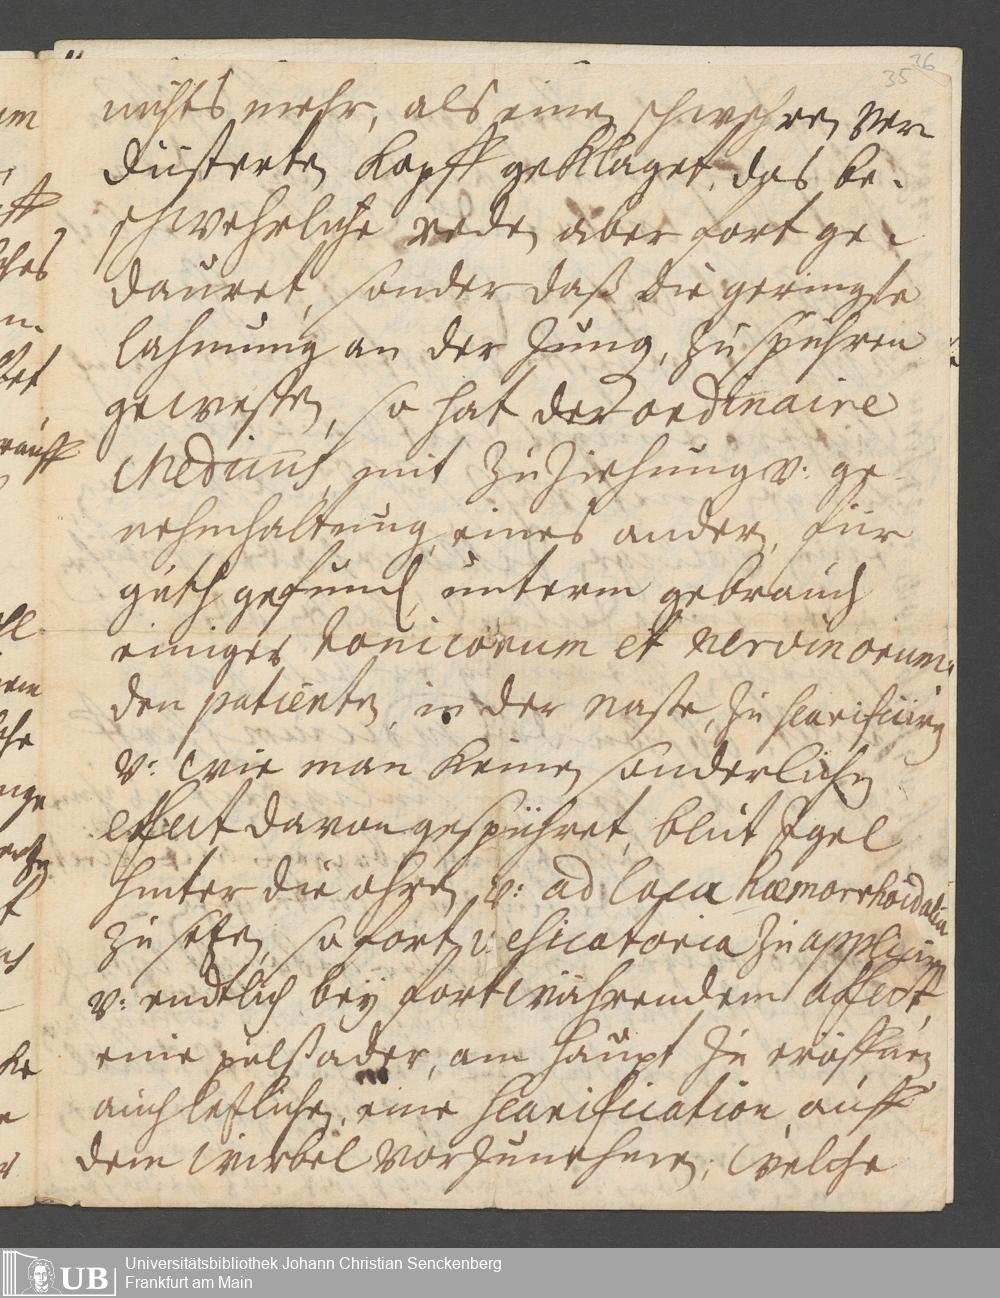 35 36
nichts mehr, als einen schwehren ver
düsterten Kopff geklaget, das be-
schwehrliche reden aber fort ge-
dauret, sonder daß die geringste
lahmung an der Zung, zu spühren
gewesen, so hat der ordinaire
Medicus, mit Zuziehung v: ge-
nehmhaltung eines andern, für
guth gefunden, unterm gebrauch
einiger tonicorum et nervinorum
den patienten, in der Nase, zu scarificiren
v: wie man keinen sonderlichen
effect davon gespühret, blut Igel
hinter die ohren v: ad loca hæmorrhoidalia
zu setzen, sofort vesicatoria zu appliciren
v: endtlich bey fortwährendem affect,
eine pulßader, am haupt zu eröffnen
auch letzlichen, eine scarification auff
dem wirbel vorzunehmen; welche
UB
Universitätsbibliothek Johann Christian Senckenberg
Frankfurt am Main